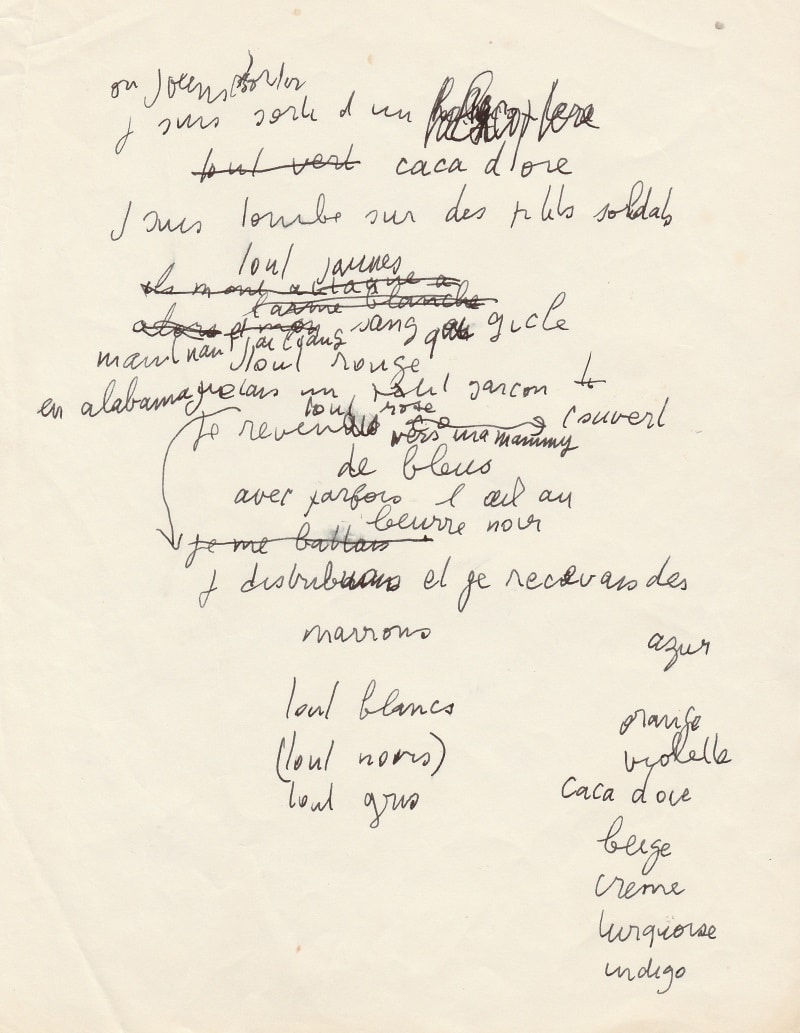 on
j suis sorti d un
tout vert caca d oie
J suis tombe sur des ptits soldats
tout jaunes
ils mont attaque a
l arme blanche
alors et mon sang gicle
maintnant jai l sang qui
tout rouge
en alabama jetais un ptit garcon
tout rose
Je revenais couvert
vers ma mammy
de bleus
avec parfois l œil au
beurre noir
je me battais
J distribuais et je recevais des
marrons
azur
tout blancs
orange
(tout noirs)
violette
tout gris
caca d oie
beige
creme
turquoise
indigo